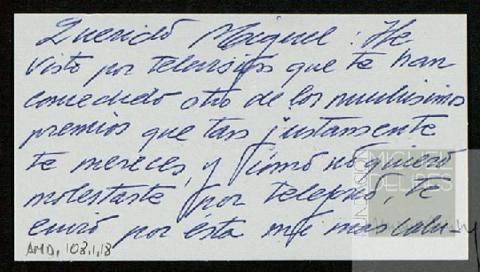 Querido Miguel: He
visto por televisión que te han
concedido otro de los muchísimos
premios que tan justamente
te mereces, y como no quiero
molestarte por teléfono, te
envío por ésta mi más calu-
AMD, 108,1,18
FUNDACIÓN
MIGUEL
DELIBES